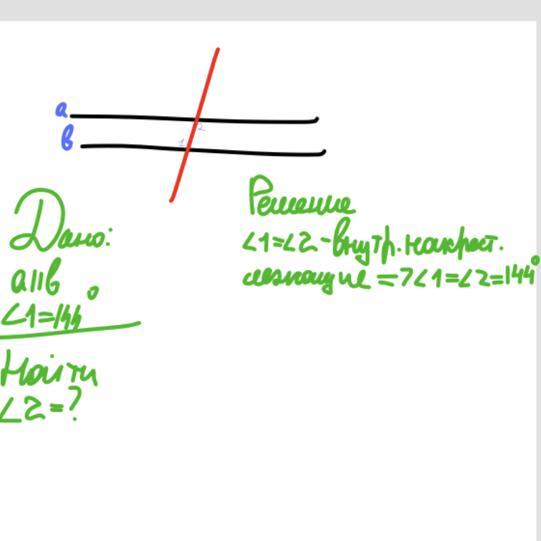 a
2
1
b
Дано:
a||b
∠1=144°
Найти
∠2=?
Решение
∠1=∠2-внутр.накрест.
лежащие =>∠1=∠2=144°